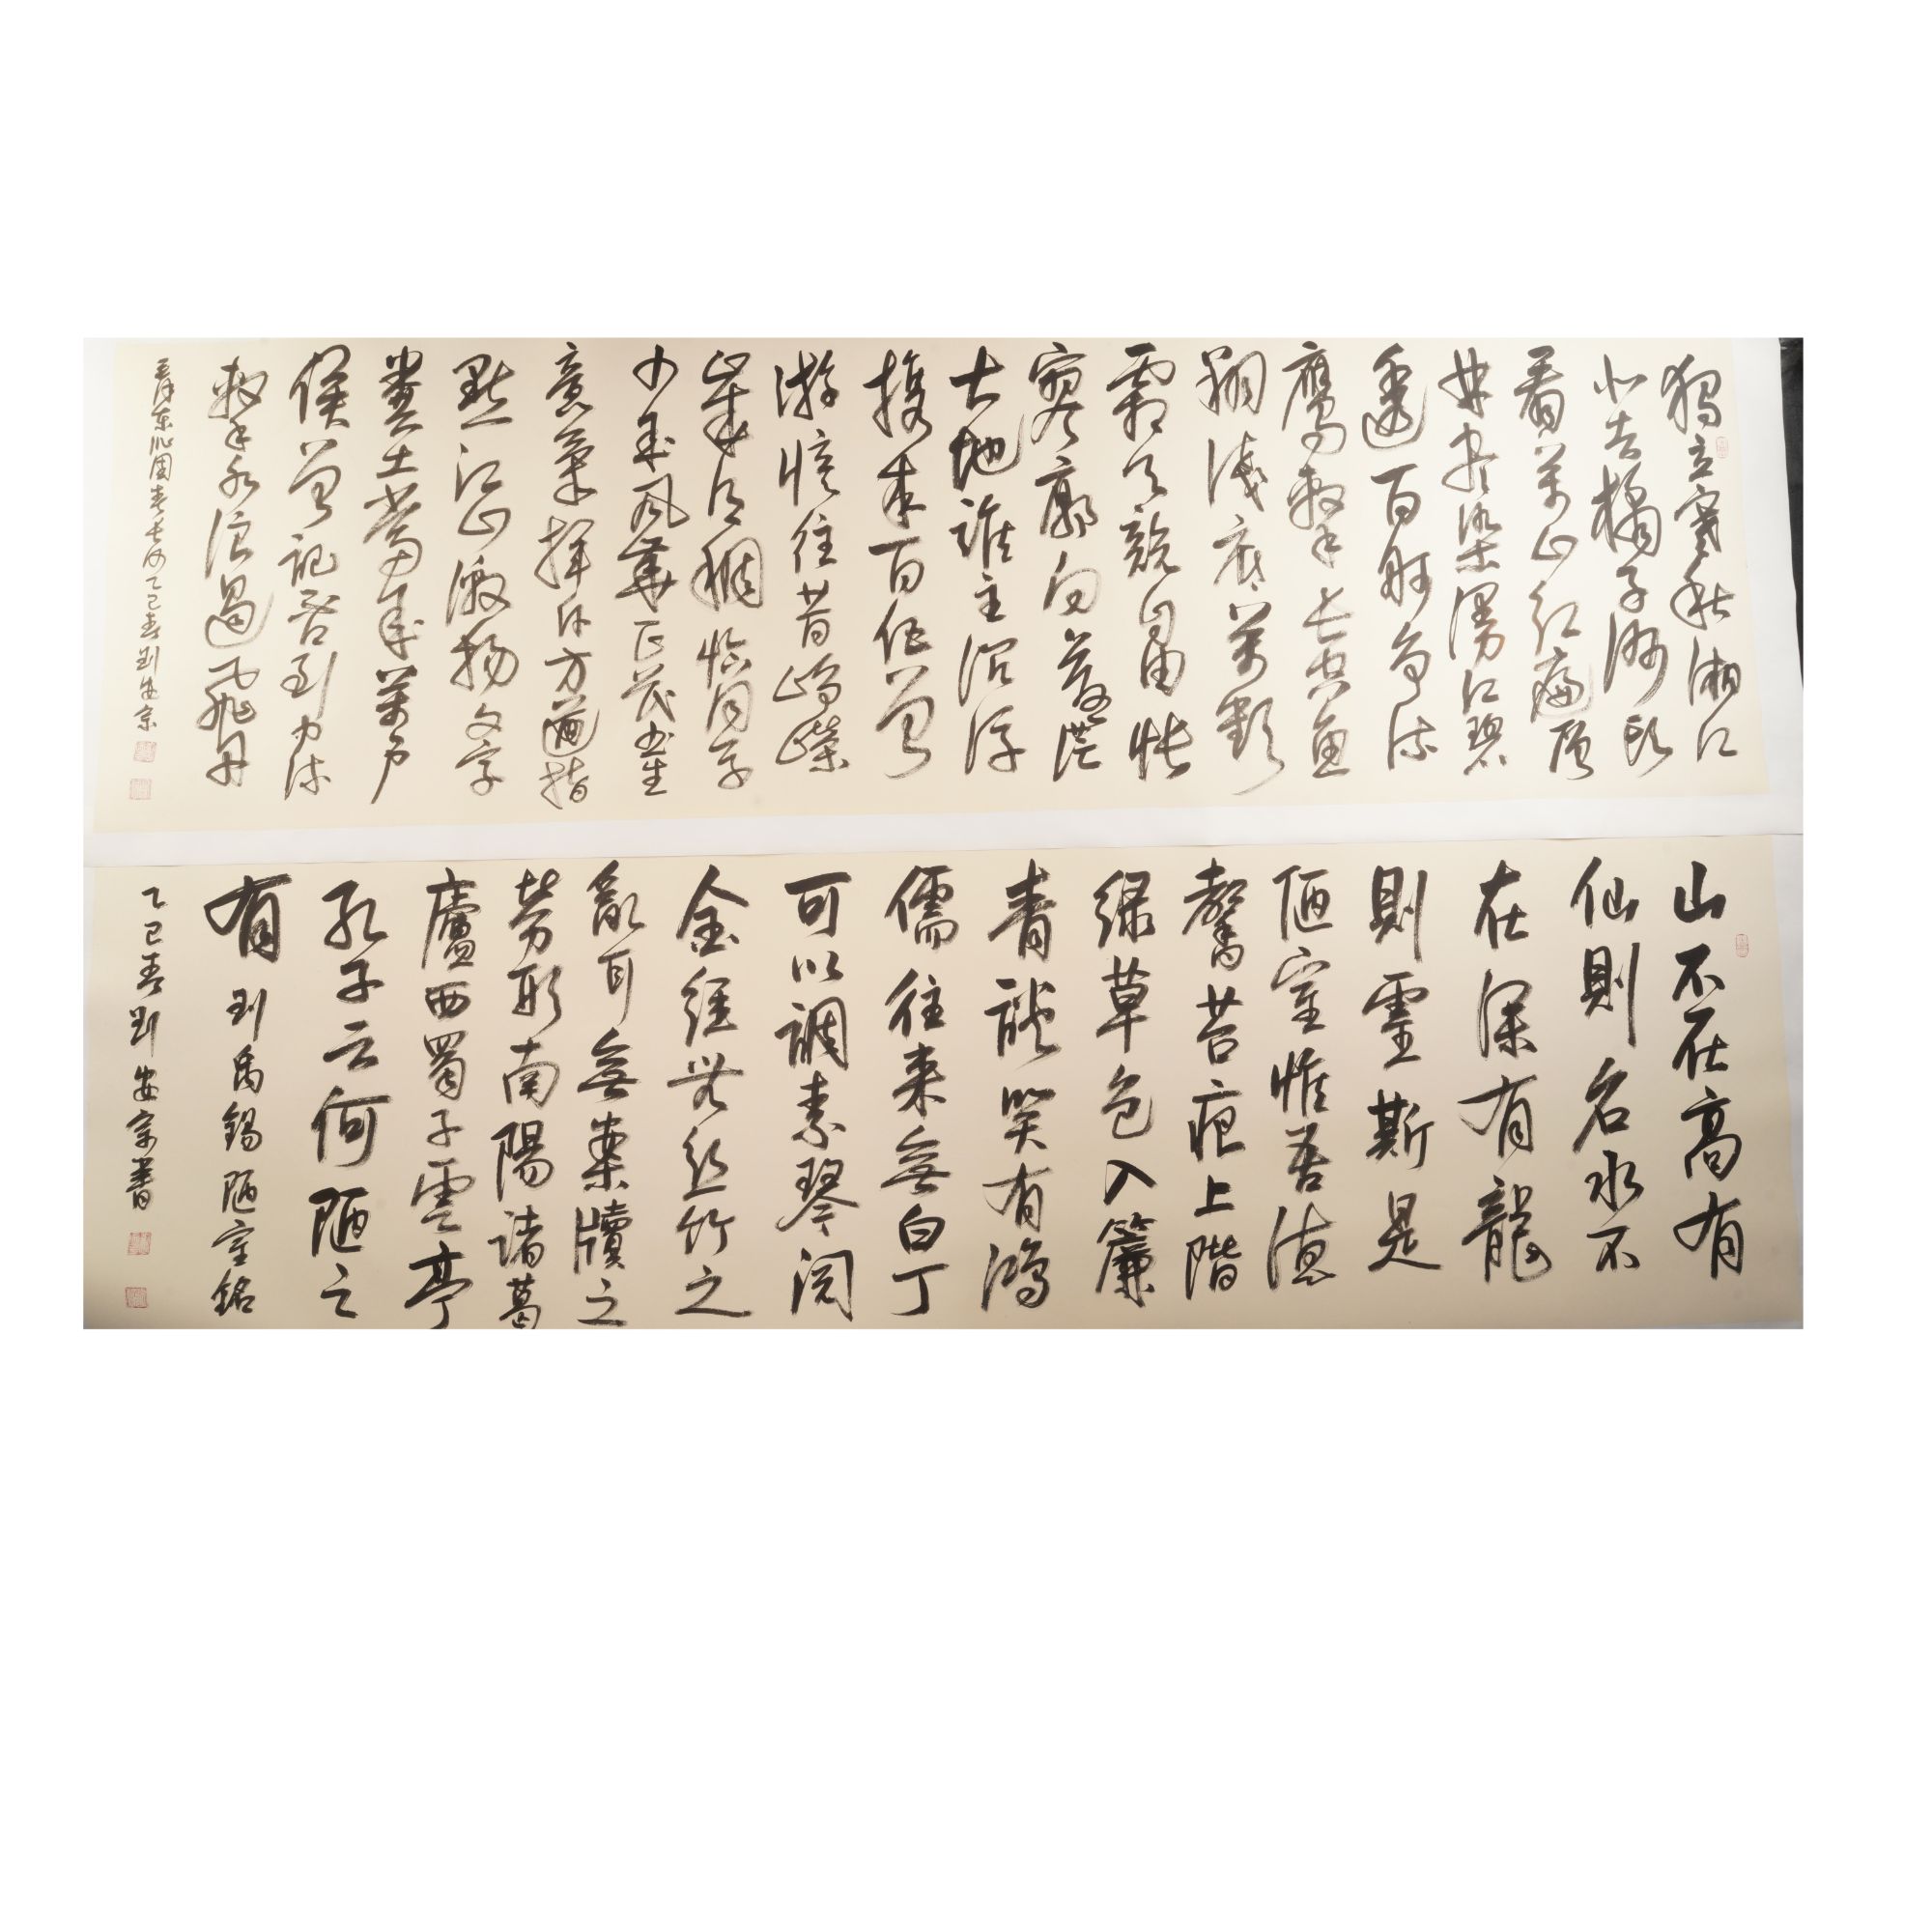 獨立寒秋湘江
北去橘子洲頭
看萬山红遍層
林盡染漫江碧
透百舸争流
鷹擊長空魚
翔淺底萬類
霜天競自由悵
寥廓问蒼茫
大地誰主沉浮
携來百侣曾
游憶往昔崢嶸
歲月稠恰同學
少年風華正茂書生
意氣揮斥方遒指
點江山激揚文字
糞土當年萬户
侯曾記否到中流
擊水浪遏飛舟
毛澤東沁園春長沙乙巳春劉安宗
山不在高有
仙則名水不
在深有龍
則靈斯是
陋室惟吾德
馨苔痕上階
緑草色入簾
青談笑有鴻
儒往來無白丁
可以調素琴閲
金經無絲竹之
亂耳無案牘之
勞形南陽諸葛
廬西蜀子雲亭
孔子云何陋之
有 劉禹錫陋室銘
乙巳春劉安宗書